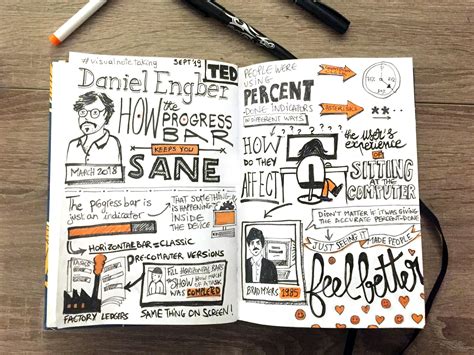 #visualnotetaking
SEPT '19
TED
Daniel Engber
HOW the
PROGRESS
BAR
KEEPS YOU
SANE
MARCH 2018
The progress bar is
just an indicator
that something
is happening
INSIDE
THE DEVICE
HORIZONTAL BAR = CLASSIC
PRE-COMPUTER VERSIONS
FILL HORIZONTAL BARS
SHOW HOW MUCH
OF A TASK
WAS COMPLETED
FACTORY LEDGERS
SAME THING ON SCREEN!
PEOPLE WERE
USING
PERCENT
-DONE INDICATORS
IN DIFFERENT WAYS
ASTERISKS
***...
HOW
DO THEY
AFFECT
the user's
experience
OF
SITTING
AT THE
COMPUTER
DIDN'T MATTER IF IT WAS GIVING
THE ACCURATE PERCENT-DONE
JUST SEEING IT MADE PEOPLE
feel better
BRAD MYERS 1985